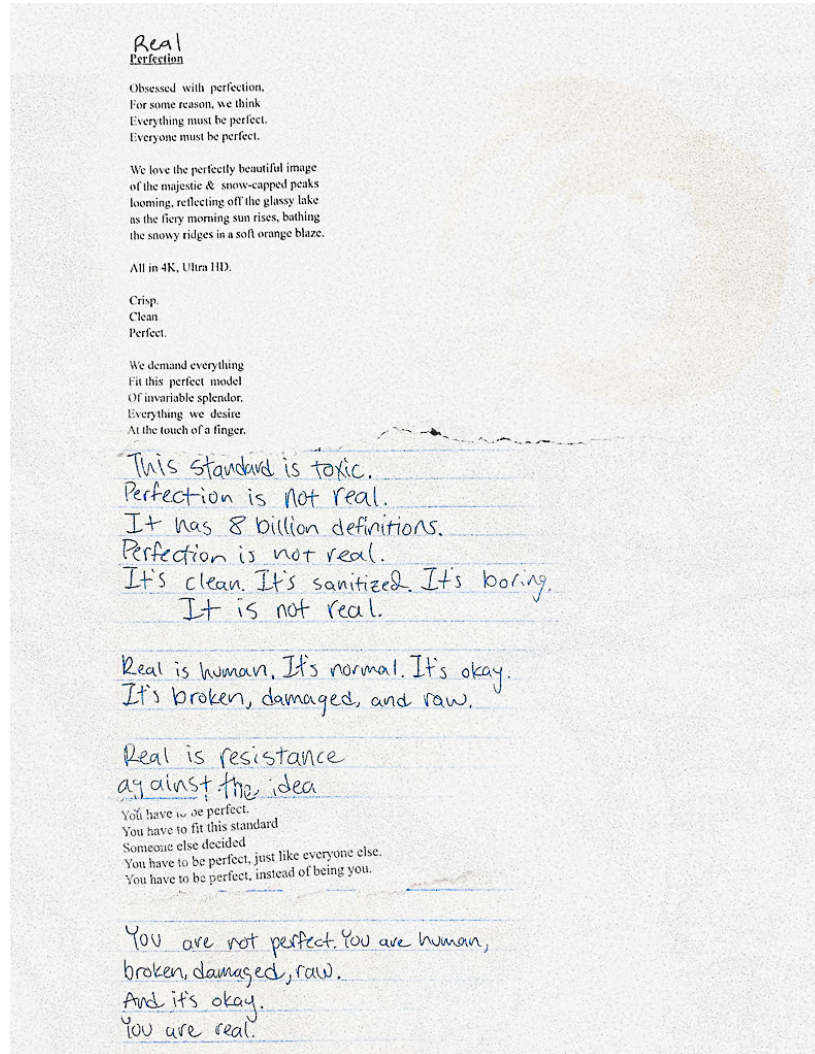 Real
Perfection
Obsessed with perfection,
For some reason, we think
Everything must be perfect.
Everyone must be perfect.
We love the perfectly beautiful image
of the majestic & snow-capped peaks
looming, reflecting off the glassy lake
as the fiery morning sun rises, bathing
the snowy ridges in a soft orange blaze.
All in 4K, Ultra HD.
Crisp.
Clean
Perfect.
We demand everything
Fit this perfect model
Of invariable splendor.
Everything we desire
At the touch of a finger.
This standard is toxic.
Perfection is not real.
It has 8 billion definitions.
Perfection is not real.
It's clean. It's sanitized. It's boring.
It is not real.
Real is human. It's normal. It's okay.
It's broken, damaged, and raw.
Real is resistance
against the idea
You have to be perfect.
You have to fit this standard
Someone else decided
You have to be perfect, just like everyone else.
You have to be perfect, instead of being you.
You are not perfect. You are human,
broken, damaged, raw.
And it's okay.
You are real.